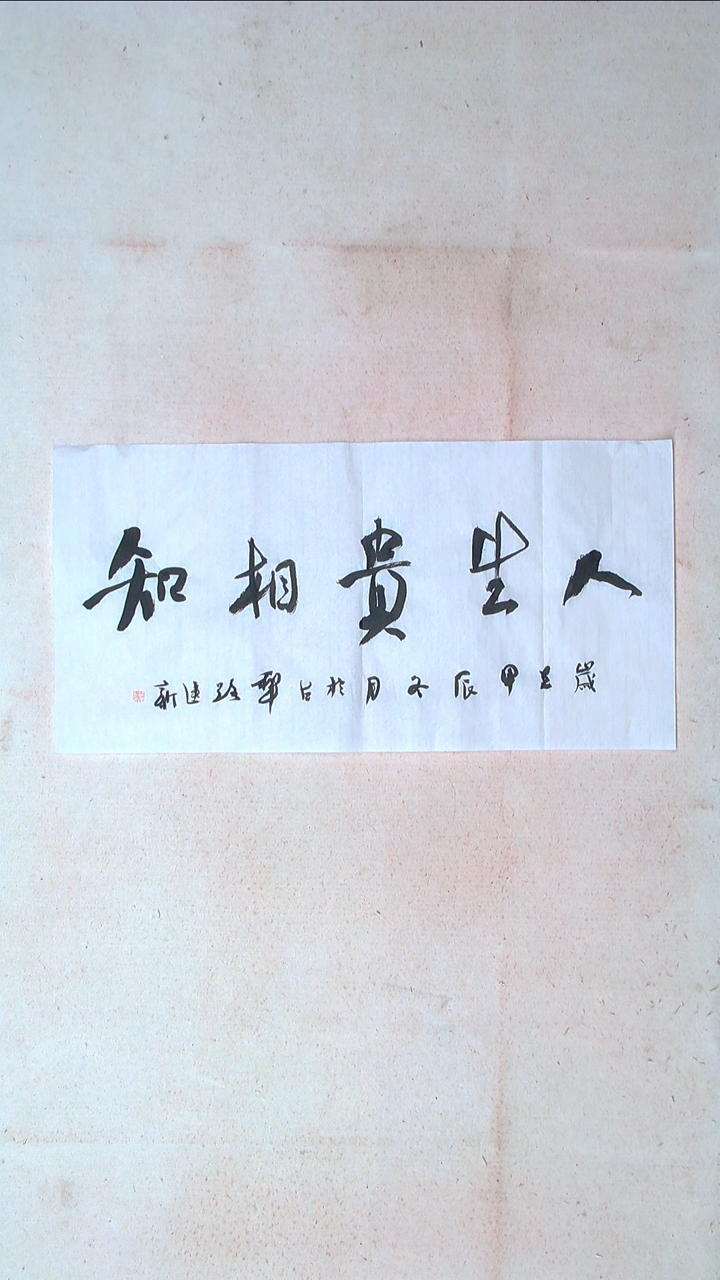 人生貴相知
歲在甲辰冬月於古犂路建新